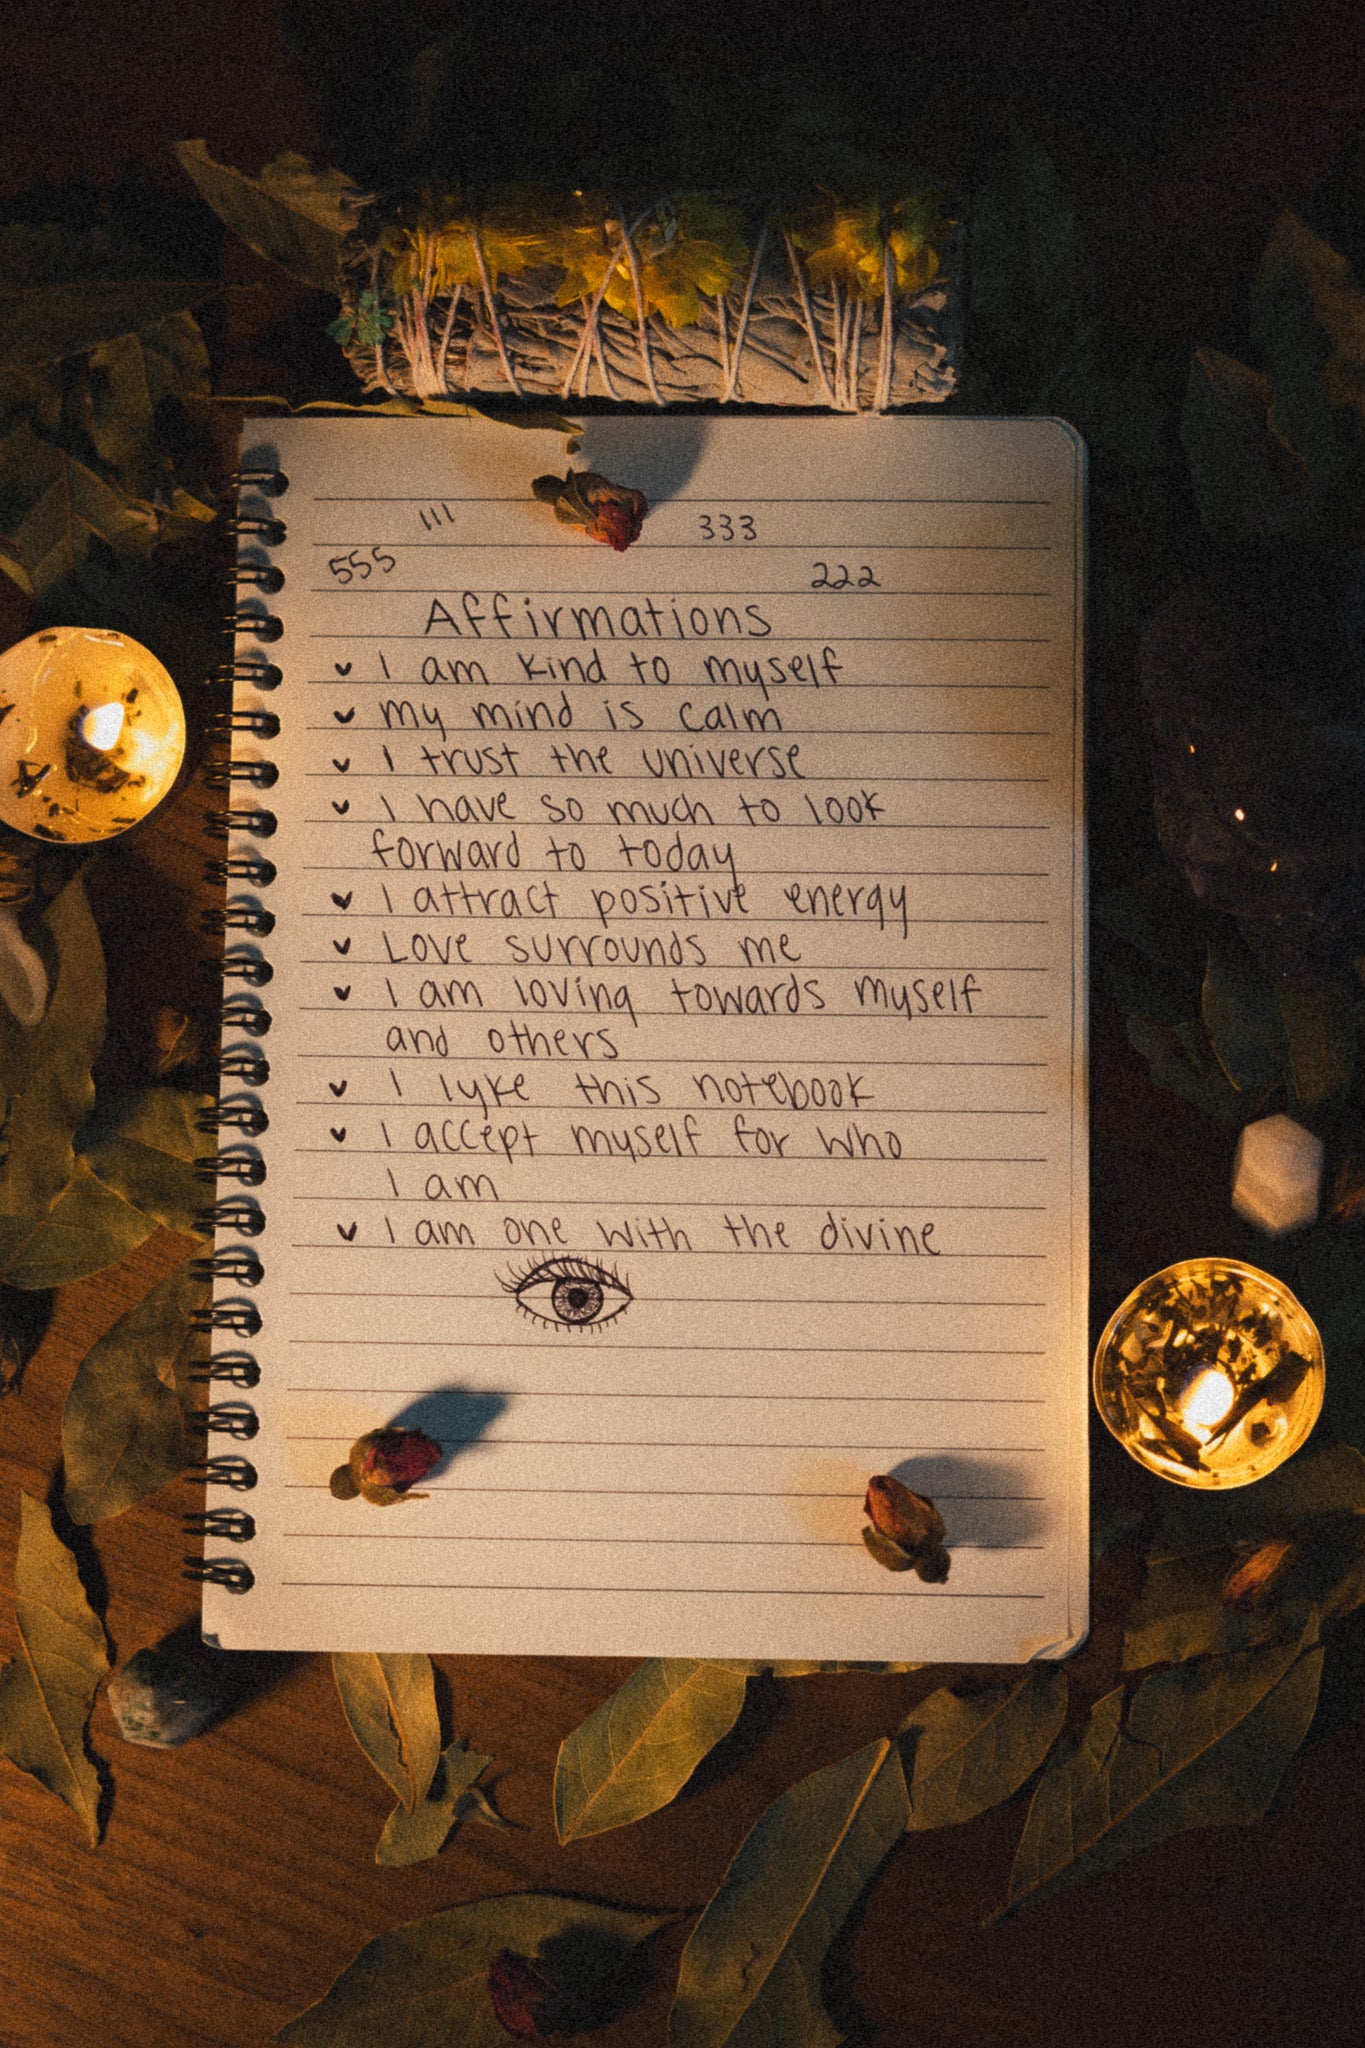 111
333
555
222
Affirmations
I am kind to myself
my mind is calm
I trust the universe
I have so much to look
forward to today
I attract positive energy
Love surrounds me
I am loving towards myself
and others
I lyke this notebook
I accept myself for who
I am
I am one with the divine